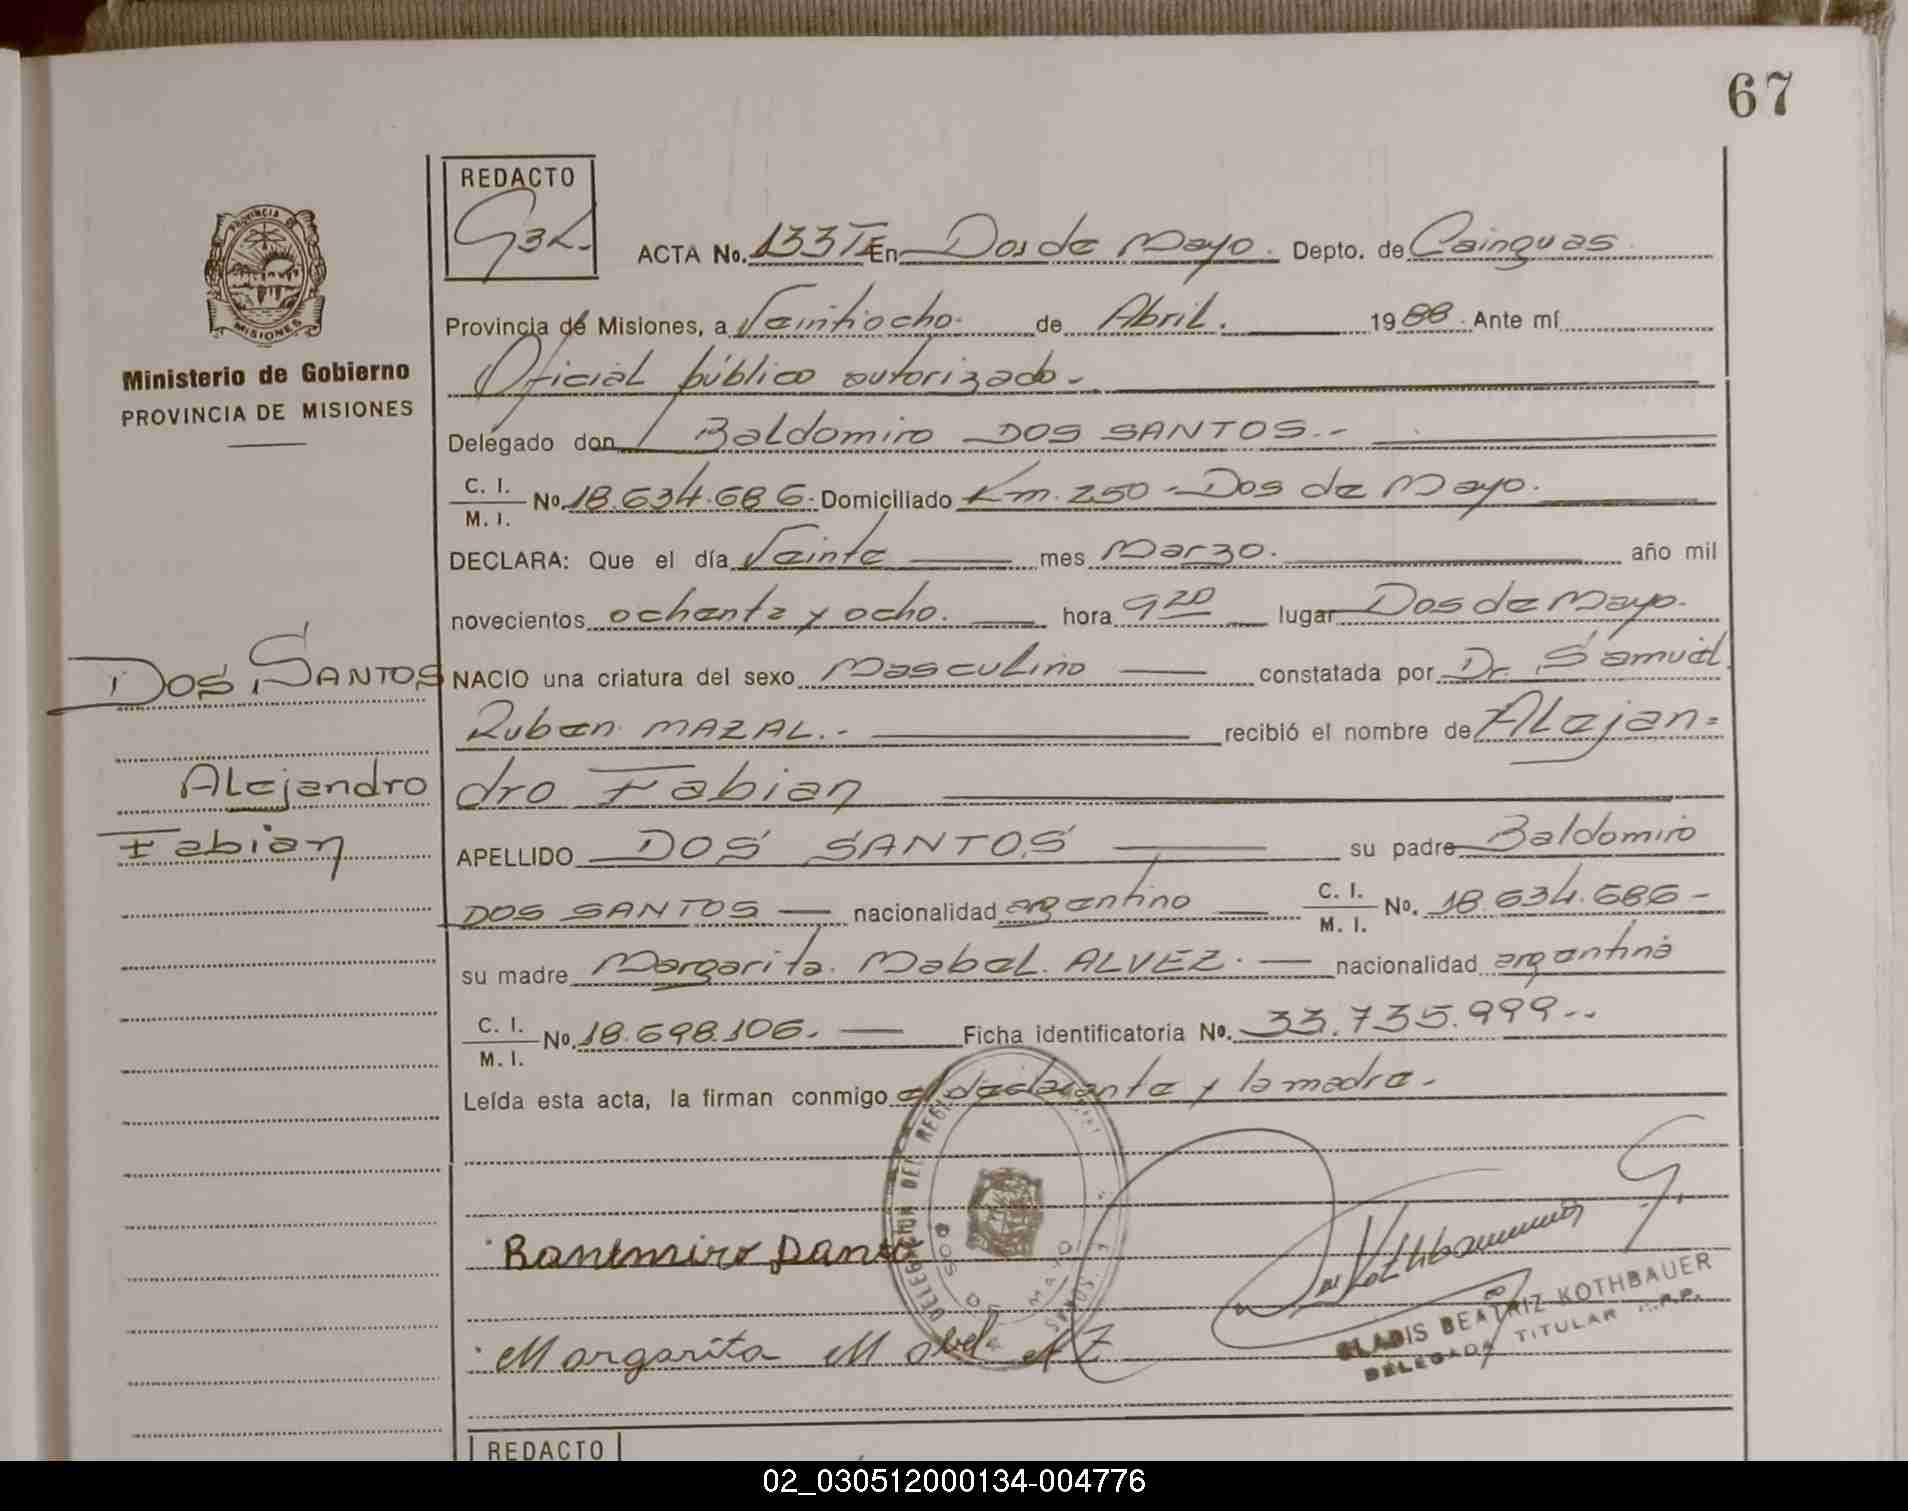 67
REDACTO
G3K.
ACTA No. 133 T I En Dos de Mayo. Depto. de Cainguas.
PROVINCIA DE
MISIONES
Provincia de Misiones, a Veintiocho. de Abril. 1988. Ante mí
Ministerio de Gobierno
PROVINCIA DE MISIONES
Oficial público autorizado.-
Delegado don Baldomiro DOS SANTOS.-
C. I.
M. I. No. 18.634.686. Domiciliado Km. 250 - Dos de Mayo.
DECLARA: Que el día Veinte mes Marzo. año mil
novecientos ochenta y ocho. hora 9 20 lugar Dos de Mayo.
DOS SANTOS
NACIO una criatura del sexo Masculino constatada por Dr. Samuel
Ruben MAZAL.- recibió el nombre de Alejan=
Alejandro
dro Fabian
Fabian
APELLIDO DOS SANTOS su padre Baldomiro
DOS SANTOS nacionalidad argentino C. I.
M. I. No. 18.634.686-
su madre Margarita Mabel ALVEZ. nacionalidad argentina
C. I.
M. I. No. 18.698.106. Ficha identificatoria No. 33.735.999.-
Leída esta acta, la firman conmigo el declarante y la madre.-
DELEGACION DEL
DOS DE MAYO
Margarita Mabel
GLADIS BEATRIZ KOTHBAUER
DELEGADA TITULAR
REDACTO
02_030512000134-004776